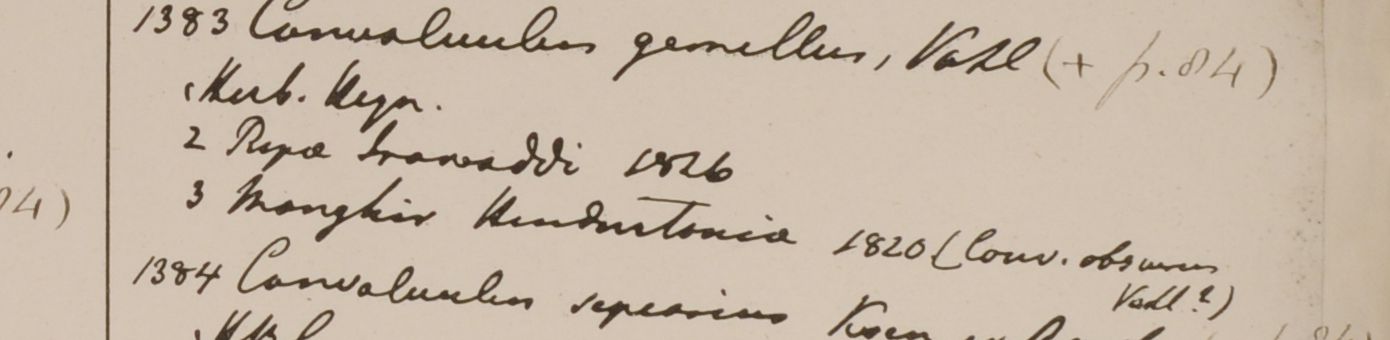 1383 Convolvulus gemellus, Vahl (+ p. 84)
1 Herb. Heyn.
2 Ripæ Irawaddi 1826
3 Monghir Hindustania 1820 (Conv. obscurus
Vahl?)
84)
1384 Convolvulus sepiarius